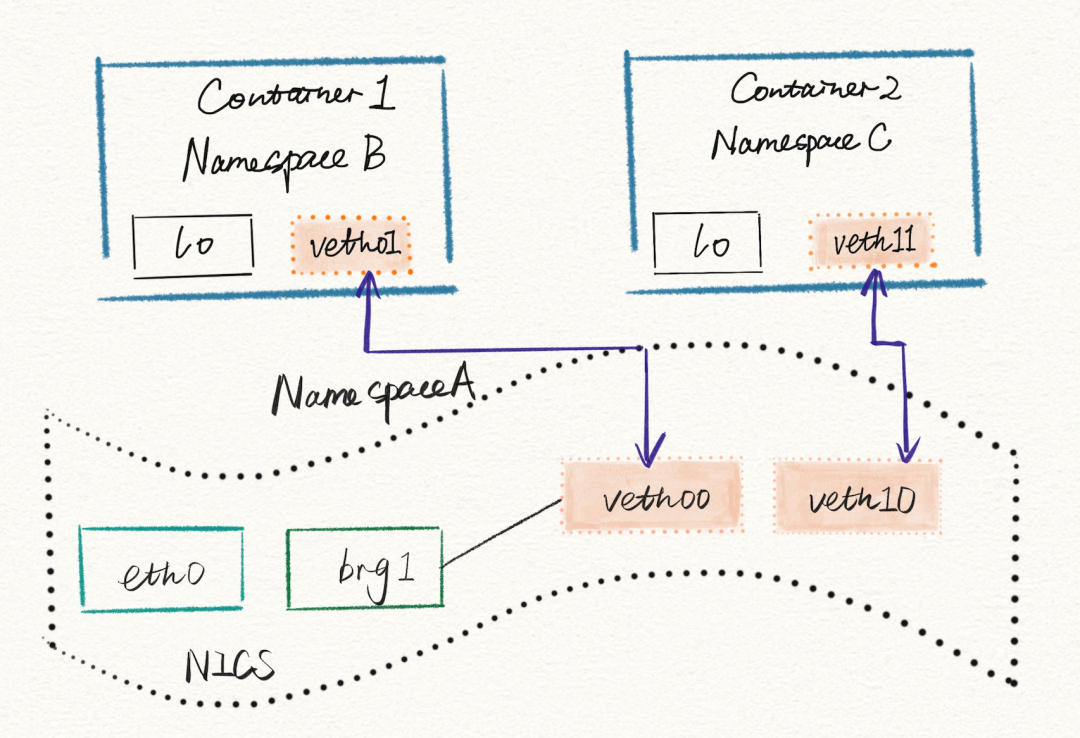 Container 1
Namespace B
lo
veth01
Container 2
Namespace C
lo
veth11
Namespace A
veth00
veth10
eth0
brg1
NICS